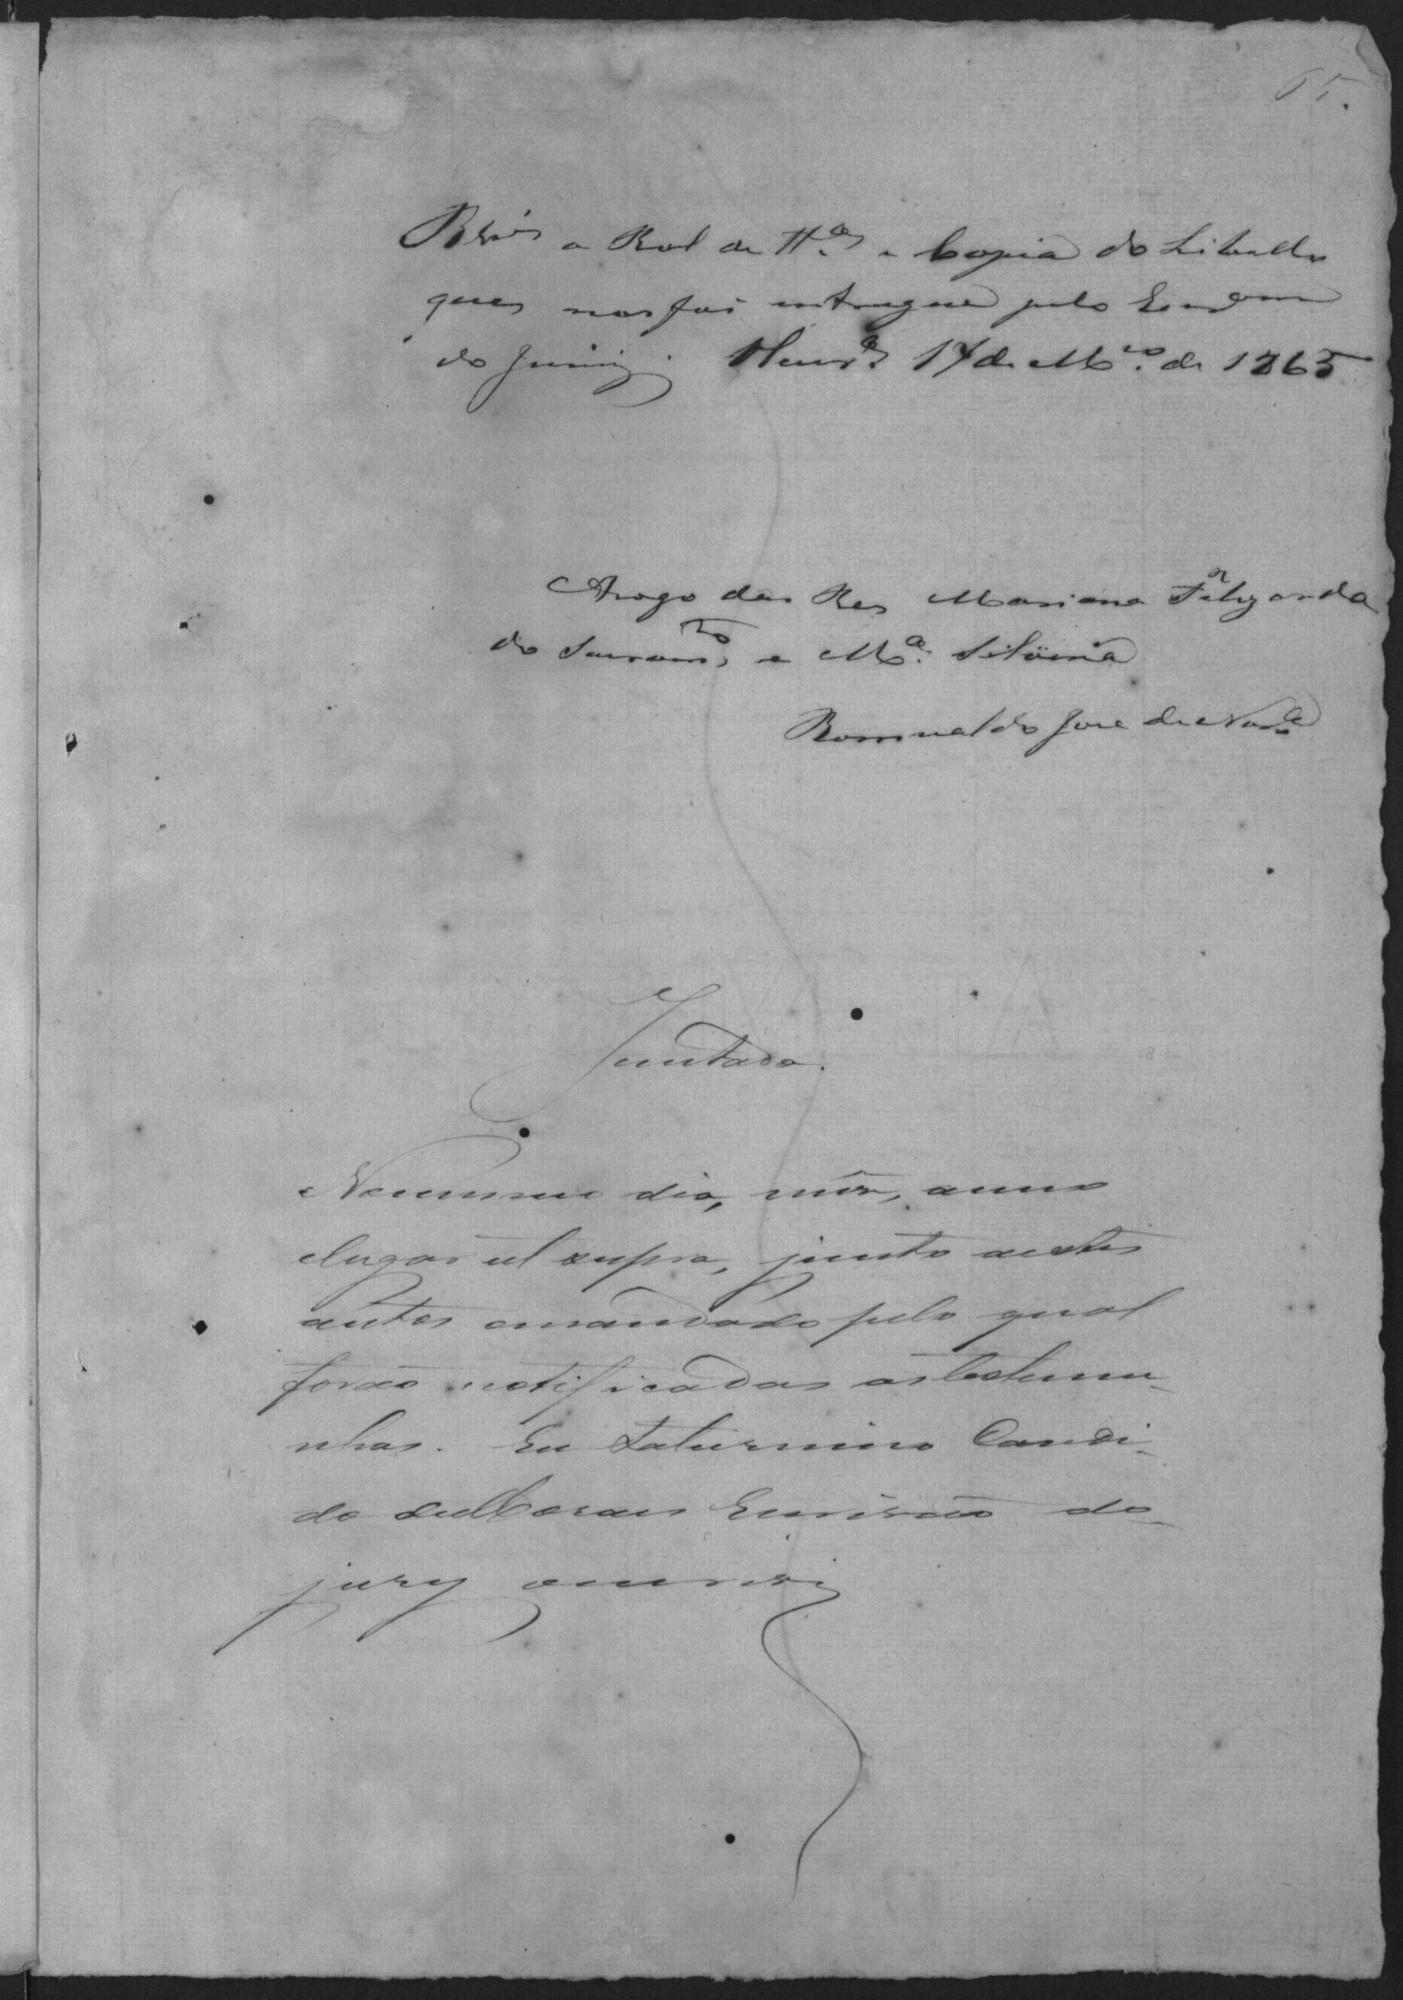 65.
o Rol de tt.as e Copia do Libello
que nos foi entregue pelo Escrivam
do Jury. 17 de M.ço de 1865
Arogo das Res Mariana
do Sacram.to, e M.a
Romualdo Jose de
Juntada.
No mesmo dia, mês, anno
elugar ut supra, junto aestes
autos omandado pelo qual
forão notificadas astestemu-
nhas. Eu Saturnino Candi-
do de Moraes Escrivão do
jury oescrevi